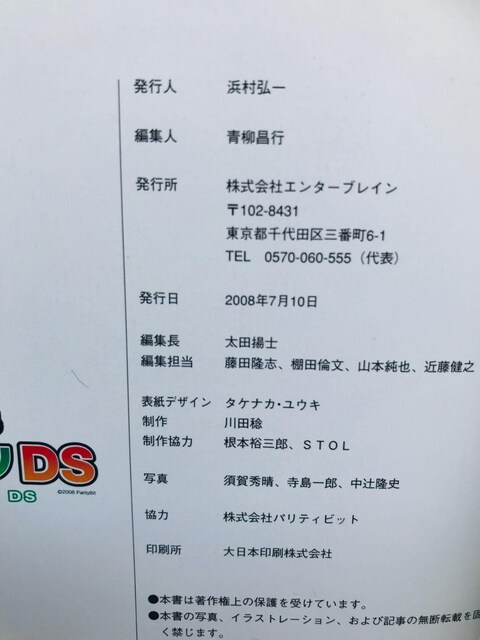 発行人　浜村弘一
編集人　青柳昌行
発行所　株式会社エンターブレイン
〒102-8431
東京都千代田区三番町6-1
TEL　0570-060-555（代表）
発行日　2008年7月10日
編集長　太田揚士
編集担当　藤田隆志、棚田倫文、山本純也、近藤健之
表紙デザイン　タケナカ・ユウキ
制作　川田稔
制作協力　根本裕三郎、ＳＴＯＬ
写真　須賀秀晴、寺島一郎、中辻隆史
協力　株式会社パリティビット
印刷所　大日本印刷株式会社
DS
DS
©2008 ParityBit
●本書は著作権上の保護を受けています。
●本書の写真、イラストレーション、および記事の無断転載を固
く禁じます。